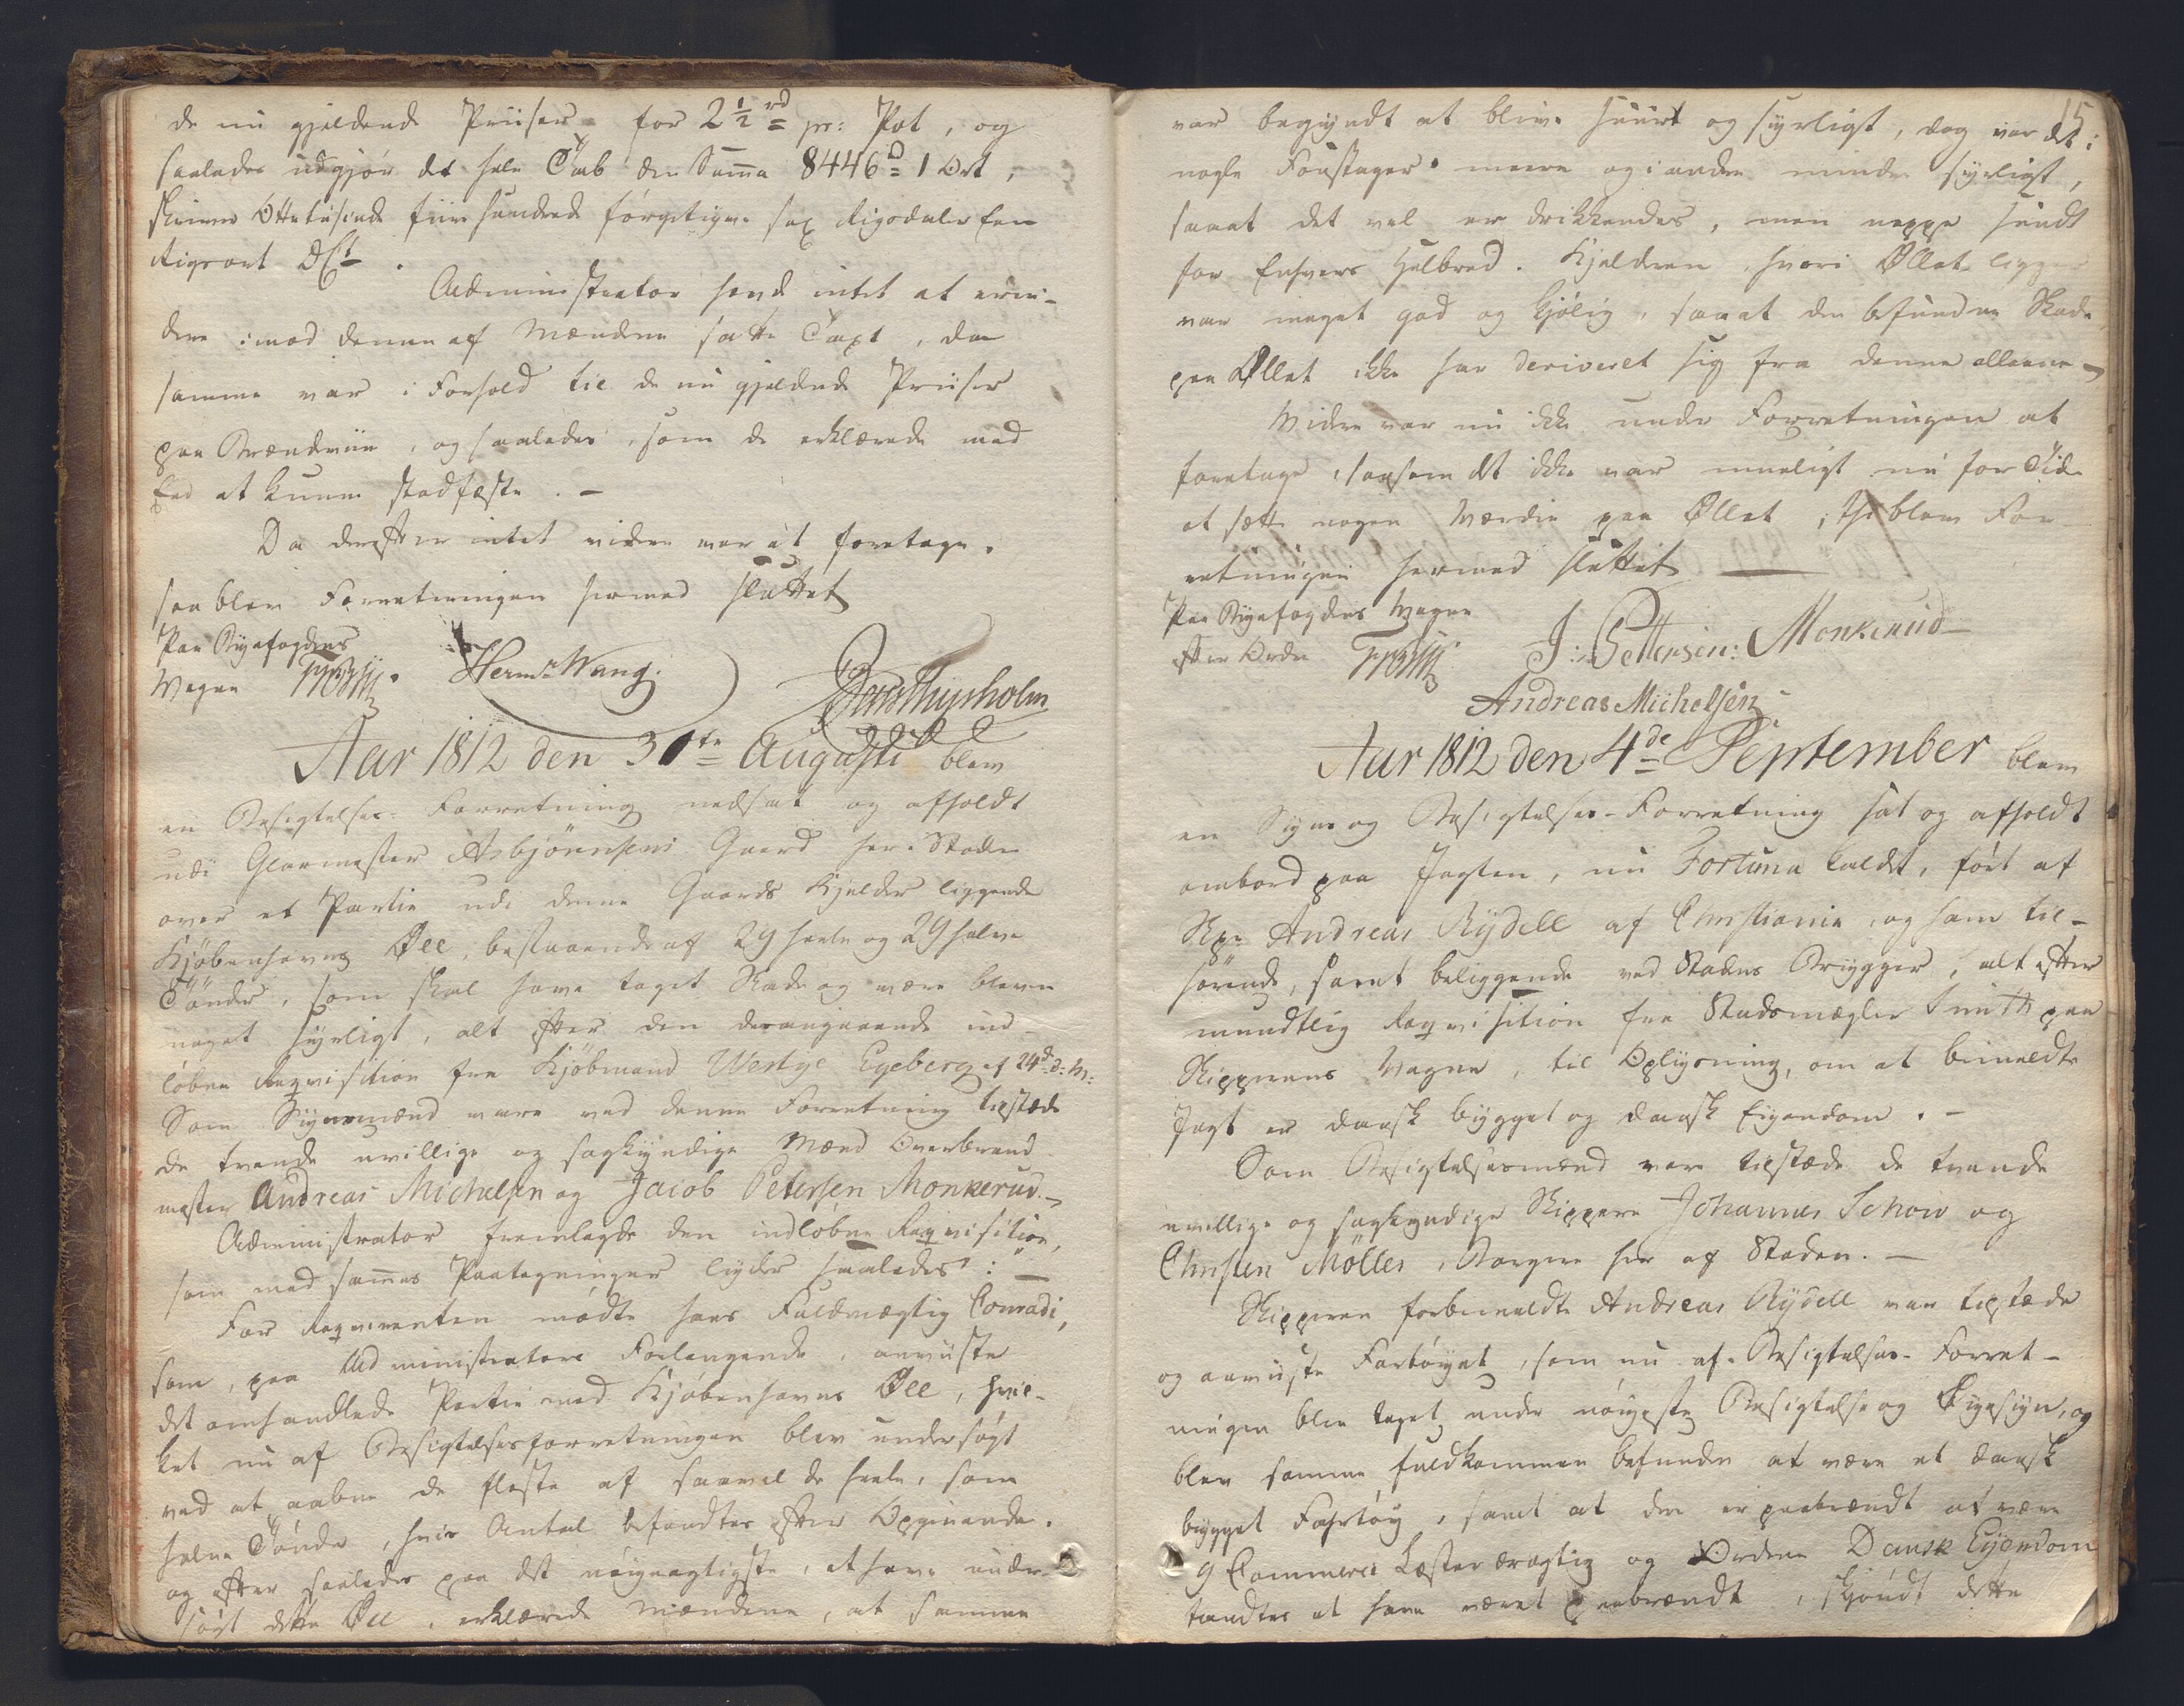 de nu gjeldende Priiser for 2½ rd pr: Pot, og
saaledes udgjør det hele Tab den Sum̄a 8446 D 1 Ort,
skriver Ottetusinde fiire hundrede førgetyve sex Rigsdaler Een
Rigsort DCt.
Administrator havde intet at erin-
dre imod denne af Mændene satte Taxt, da
samme var i Forhold til de nu gjeldende Priiser
paa Brændeviin, og saaledes, som de erklærede med
Eed at kunne stadfæste. -
Da derefter intet videre var at foretage,
saa blev Forretningen hermed sluttet
Paa Byefogdens
Vegne Herm. Wang. Jens Thysholm
Aar 1812 den 31te Augusti blev
en Besigtelses-Forretning nedsat og afholdt
udi Glarmester Asbjörnsens Gaard her i Staden
over et Partie udi denne Gaards Kjelder liggende
Kjøbenhavns Øll, bestaaende af 29 heele og 29 halve
Tønder, som skal have taget Skade og være bleven
noget syrligt, alt efter den desangaaende ind-
løbne Reqvisition fra Kjøbmand Westye Egeberg af 24d: d: M:
Som Synsmænd vare ved denne Forretning tilstæde
de tvende uvillige og sagkyndige Mænd Overbrand-
mester Andreas Michelsen og Jacob Petersen Monkerud. -
Administrator fremlagde den indløbne Reqvisition,
som med sam̄es Paategninger lyder saaledes: -
For Reqvirenten mødte hans Fuldmægtig Conradi,
som, paa Administrators Forlangende, anviiste
det omhandlede Partie med Kjøbenhavns Øll, hvil-
ket nu af Besigtelsesforretningen blev undersøgt
ved at aabne de fleste af saavel de heele, som
halve Tønder, hvis Antal befandtes efter Opgivende.
og efter saaledes paa det nøiagtigste, at have under-
søgt dette Øll, erklærede Mændene, at samme
15
var begyndt at blive suurt og syrligt, dog var det i
nogle Foustager meere og i andre mindre syrligt,
saaat det vel er drikkendes, men neppe sundt
for Enhvers Helbred. Kjelderen, hvori Øllet ligger
var meget god og kjølig, saaat den befundne Skade
paa Øllet ikke har deriveret sig fra denne alleene -
Videre var nu ikke under Forretningen at
foretage, saasom det ikke var mueligt nu for Tiden
at sætte nogen Værdie paa Øllet, thi blev For-
retningen hermed sluttet
Paa Byefogdens Vegne
efter Ordre J: Pettersen: Monkerud
Andreas Michelsen
Aar 1812 den 4de September blev
en Syns og Besigtelses-Forretning sat og afholdt
ombord paa Jagten, nu Fortuna kaldet, ført af
Skpr Andreas Rydell af Christiania, og ham til-
hørende, samt beliggende ved Stadens Brygger, alt efter
mundtlig Reqvisition fra Stadsmægler Smith paa
Skipperens Vegne, til Oplysning, om at bemeldte
Jagt er dansk bygget og dansk Eiendom. -
Som Besigtelsesmænd vare tilstæde de tvende
uvillige og sagkyndige Skippere Johannes Schow og
Christen Möller, Borgere her af Staden. -
Skipperen forbemeldte Andreas Rydell var tilstæde
og anviiste Fartøyet, som nu af Besigtelses-Forret-
ningen blev taget under nøyeste Besigtelse og Eyesyn, og
blev samme fuldkommen befunden at være et dansk
bygget Fartøy, samt at den er paabrændt at være
9 Commerce Læster drægtig og Ordene Dansk Eyendom
fandtes at have været paabrændt, skjøndt dette